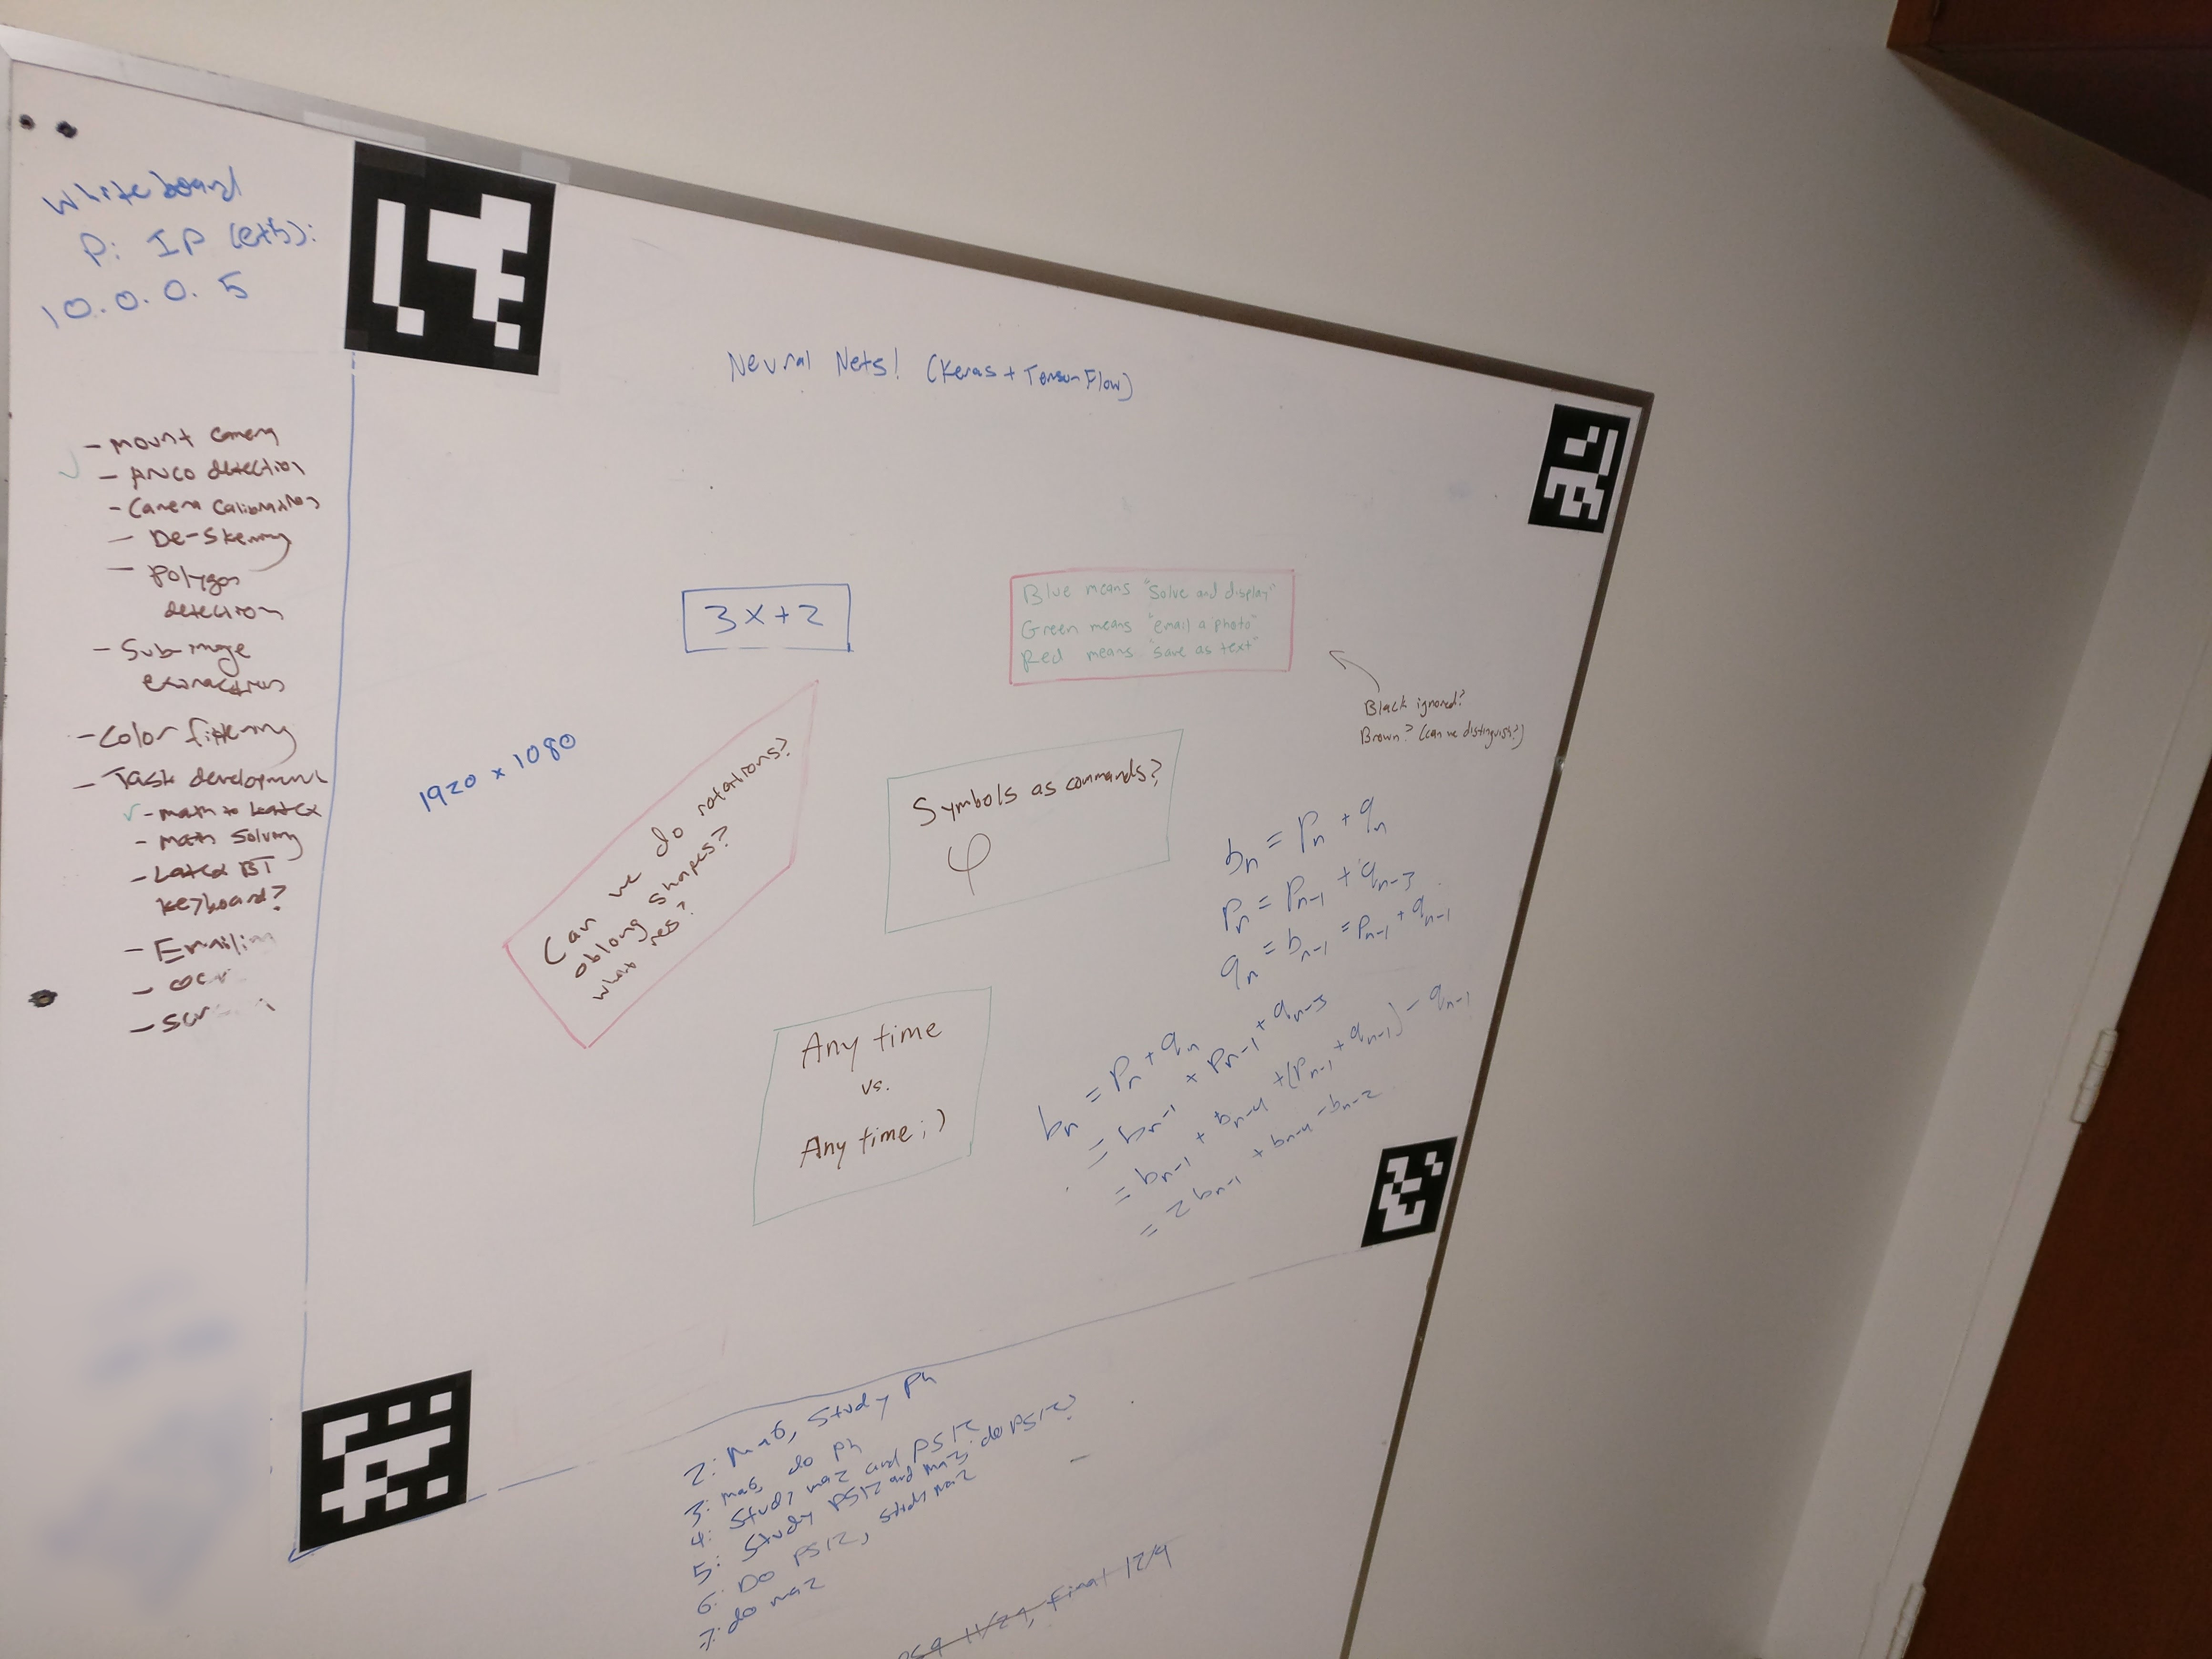 Whiteboard
P: IP (eth):
10.0.0.5
- Mount camera
- Aruco detection
- Camera Calibration
- De-Skewing
- Polygon
detection
- Sub-image
extraction
- Color filtering
- Task development
- math to LaTeX
- math Solving
- LaTeX BT
keyboard?
- Emailin
- OCR
Neural Nets! (Keras + TensorFlow)
3x+2
Blue means "Solve and display"
Green means "email a photo"
Red means "save as text"
Black ignored?
Brown? (can we distinguish?)
1920 x 1080
Can we do rotations?
oblong shapes?
what res?
Symbols as commands?
φ
Any time
vs.
Any time ;)
b_n = p_n + q_n
p_n = p_{n-1} + q_{n-3}
q_n = b_{n-1} = p_{n-1} + q_{n-1}
b_n = p_n + q_n
= b_{n-1} + p_{n-1} + q_{n-3}
= b_{n-1} + b_{n-4} + (p_{n-1} + q_{n-1}) - q_{n-1}
= 2b_{n-1} + b_{n-4} - b_{n-2}
2: Ma6, Study Ph
3: ma6, do ph
4: Study ma2 and PS12
5: Study PS12 and ma3, do PS12?
6: Do PS12, study ma2
7: do ma2
11/29, final 12/9